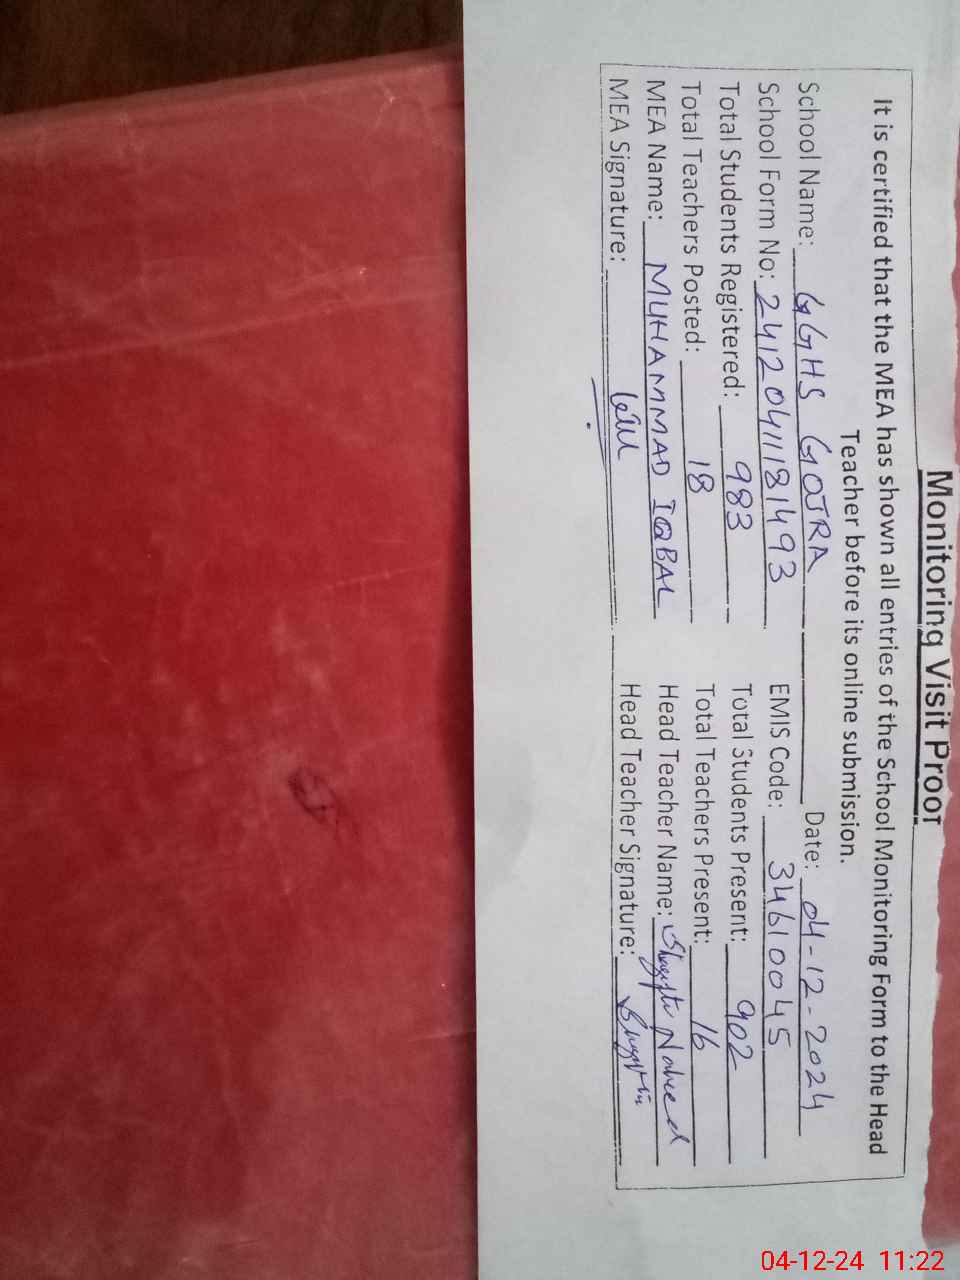 Monitoring Visit Proof
It is certified that the MEA has shown all entries of the School Monitoring Form to the Head
Teacher before its online submission.
School Name: GGHS GOJRA Date: 04-12-2024
School Form No: 24120411181493 EMIS Code: 34610045
Total Students Registered: 983 Total Students Present: 902
Total Teachers Posted: 18 Total Teachers Present: 16
MEA Name: MUHAMMAD IQBAL Head Teacher Name: Shagufta Naheed
MEA Signature: Head Teacher Signature:
04-12-24 11:22